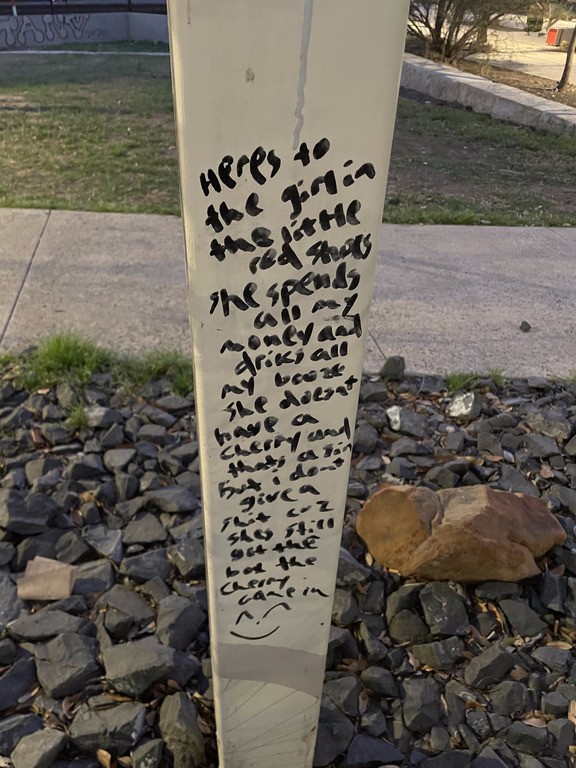 Heres to
the girl in
the little
red shoes
she spends
all my
money and
driks all
my booze
she doesnt
have a
cherry and
thats a sin
but i dont
give a
shit cuz
shes still
got the
box the
cherry
came in